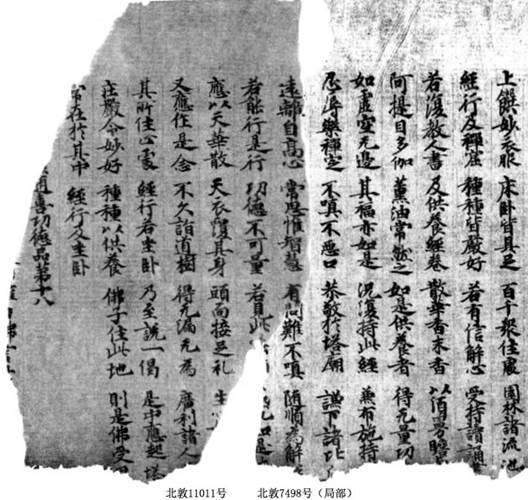 上饌妙衣服 床臥皆具足 百千眾住處 園林諸流池
經行及禪窟 種種皆嚴好 若有信解心 受持讀誦
若復教人書 及供養經卷 散華香末香 以須曼瞻
阿提目多伽 薰油常燃之 如是供養者 得无量功
如虛空无邊 其福亦如是 況復持此經 兼布施持
忍辱樂禪定 不嗔不惡口 恭敬於塔廟 謙下諸比
遠離自高心 常思惟智慧 有問難不嗔 隨順為解
若能行是行 功德不可量 若見此
應以天華散 天衣覆其身 頭面接足礼 生
又應作是念 不久詣道樹 得无漏无為 廣利諸人
其所住止處 經行若坐臥 乃至說一偈 是中應起塔
莊嚴令妙好 種種以供養 佛子住此地 則是佛受
常在於其中 經行及坐臥
隨喜功德品第十八
北敦11011号 北敦7498号（局部）